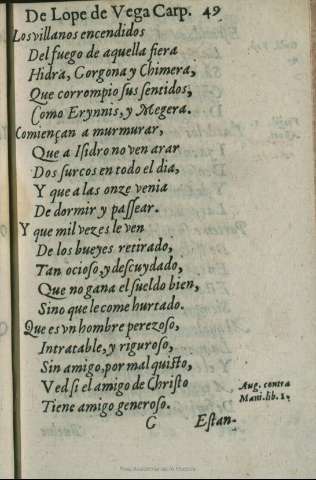 De Lope de Vega Carp. 49
Los villanos encendidos
Del fuego de aquella fiera
Hidra, Gorgona y Chimera,
Que corrompio sus sentidos,
Como Erynnis, y Megera.
Comiençan a murmurar,
Que a Isidro no ven arar
Dos surcos en todo el dia,
Y que a las onze venia
De dormir y passear.
Y que mil vezes le ven
De los bueyes retirado,
Tan ocioso, y descuydado,
Que no gana el sueldo bien,
Sino que le come hurtado.
Que es vn hombre perezoso,
Intratable, y riguroso,
Sin amigo, por mal quisto,
Ved si el amigo de Christo
Tiene amigo generoso.
Aug. contra
Mani. lib. 1.
G Estan-